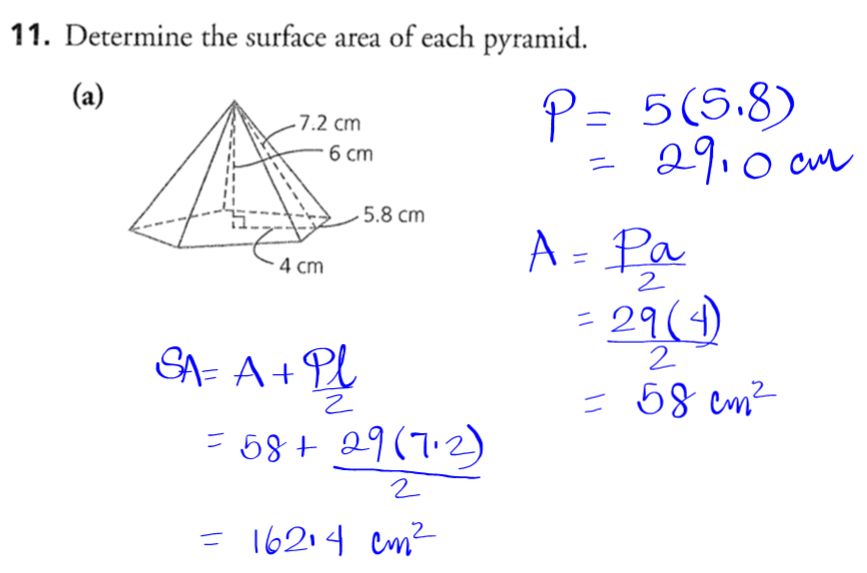 11. Determine the surface area of each pyramid.
(a)
7.2 cm
6 cm
5.8 cm
4 cm
P = 5(5.8)
= 29.0 cm
A = Pa/2
= 29(4)/2
= 58 cm²
SA = A + Pl/2
= 58 + 29(7.2)/2
= 162.4 cm²